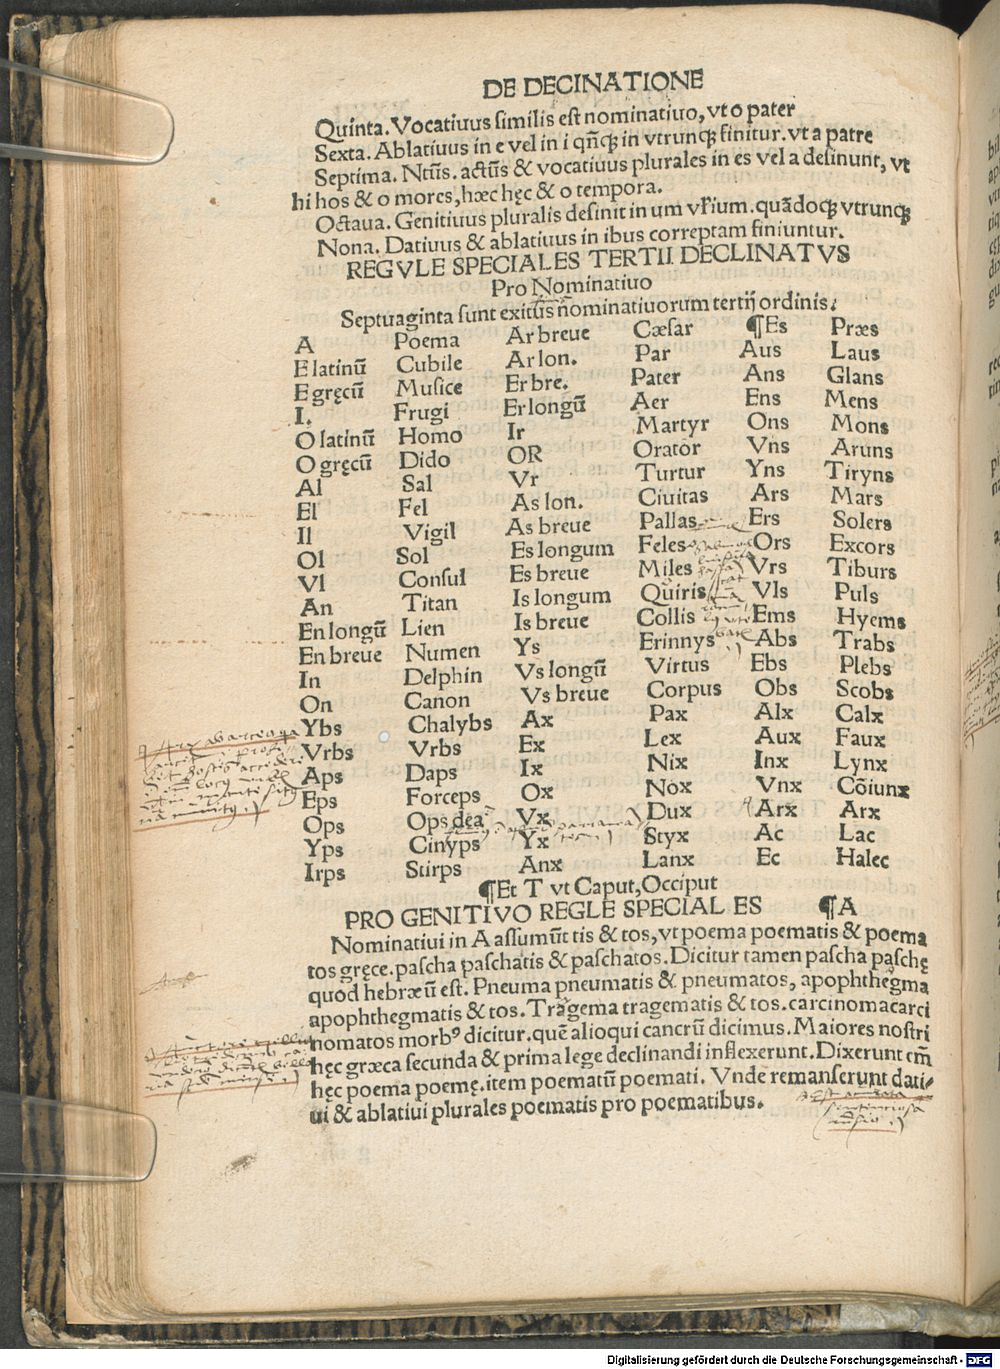 DE DECINATIONE
Quinta. Vocatiuus similis est nominatiuo, vt o pater
Sexta. Ablatiuus in e vel in i qñcꝗ in vtrunꝗ finitur. vt a patre
Septima. Ntūs. actūs & vocatiuus plurales in es vel a desinunt, vt
hi hos & o mores, hæc hęc & o tempora.
Octaua. Genitiuus pluralis desinit in um vr̃ium. quãdoꝗ vtrunꝗ
Nona. Datiuus & ablatiuus in ibus correptam finiuntur.
REGVLE SPECIALES TERTII DECLINATVS
Pro Nominatiuo
Septuaginta sunt exitus nominatiuorum tertij ordinis:
A Poema Ar breue Cæsar ¶Es Præs
E latinũ Cubile Ar lon. Par Aus Laus
E gręcũ Musice Er bre. Pater Ans Glans
I. Frugi Er longũ Aer Ens Mens
O latinũ Homo Ir Martyr Ons Mons
O gręcũ Dido OR Orator Vns Aruns
Al Sal Vr Turtur Yns Tiryns
El Fel As lon. Ciuitas Ars Mars
Il Vigil As breue Pallas Ers Solers
Ol Sol Es longum Feles Ors Excors
Vl Consul Es breue Miles Vrs Tiburs
An Titan Is longum Quiris Vls Puls
En longũ Lien Is breue Collis Ems Hyems
En breue Numen Ys Erinnys Abs Trabs
In Delphin Vs longũ Virtus Ebs Plebs
On Canon Vs breue Corpus Obs Scobs
Ybs Chalybs Ax Pax Alx Calx
Vrbs Vrbs Ex Lex Aux Faux
Aps Daps Ix Nix Inx Lynx
Eps Forceps Ox Nox Vnx Cõiunx
Ops Ops dea Vx Dux Arx Arx
Yps Cinyps Yx Styx Ac Lac
Irps Stirps Anx Lanx Ec Halec
¶Et T vt Caput, Occiput
PRO GENITIVO REGLE SPECIALES ¶A
Nominatiui in A assumũt tis & tos, vt poema poematis & poema
tos gręce. pascha paschatis & paschatos. Dicitur tamen pascha paschę
quod hebræũ est. Pneuma pneumatis & pneumatos, apophthegma
apophthegmatis & tos. Tragema tragematis & tos. carcinoma carci
nomatos morbꝰ dicitur. quẽ alioqui cancrũ dicimus. Maiores nostri
hęc græca secunda & prima lege declinandi inflexerunt. Dixerunt em̃
hęc poema poemę. item poematũ poemati. Vnde remanserunt dati-
ui & ablatiui plurales poematis pro poematibus.
Digitalisierung gefördert durch die Deutsche Forschungsgemeinschaft - DFG